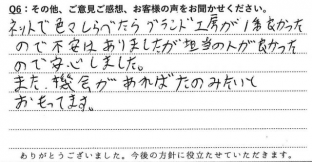 Q6：その他、ご意見ご感想、お客様の声をお聞かせください。
ネットで色々しらべたらブランド工房が1番良かった
ので不安はありましたが担当の人が良かった
ので安心しました。
また、機会があればたのみたいと
おもってます。
ありがとうございました。今後の方針に役立たせていただきます。